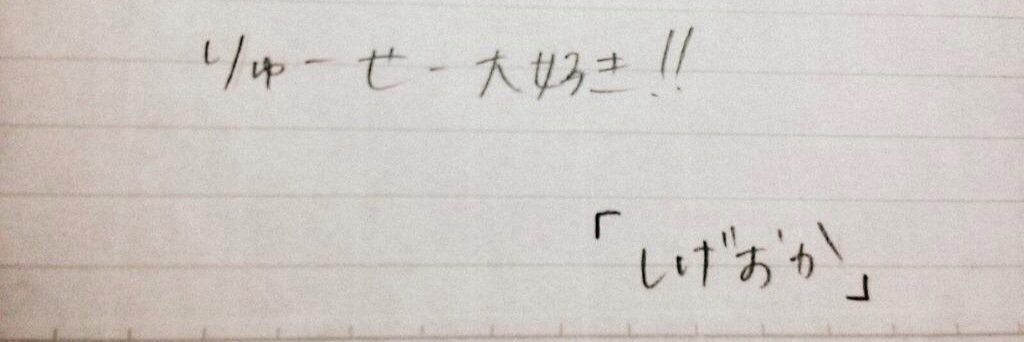 りゅーせー大好き!!
「しげおか」